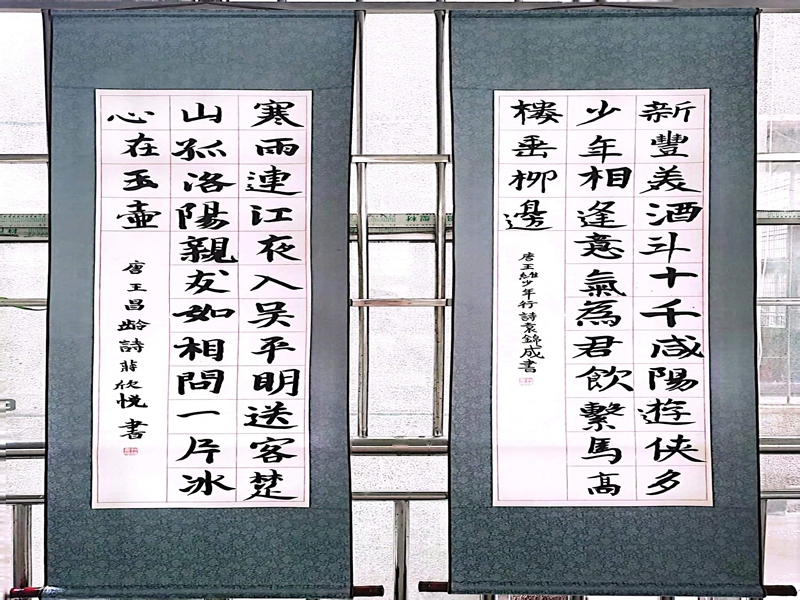 新豐美酒斗十千咸陽遊侠多
少年相逢意氣為君飲繫馬高
楼垂柳邊
唐王維少年行詩袁錦成書
寒雨連江夜入吴平明送客楚
山孤洛陽親友如相問一片冰
心在玉壺
唐王昌齡詩蔣欣悦書